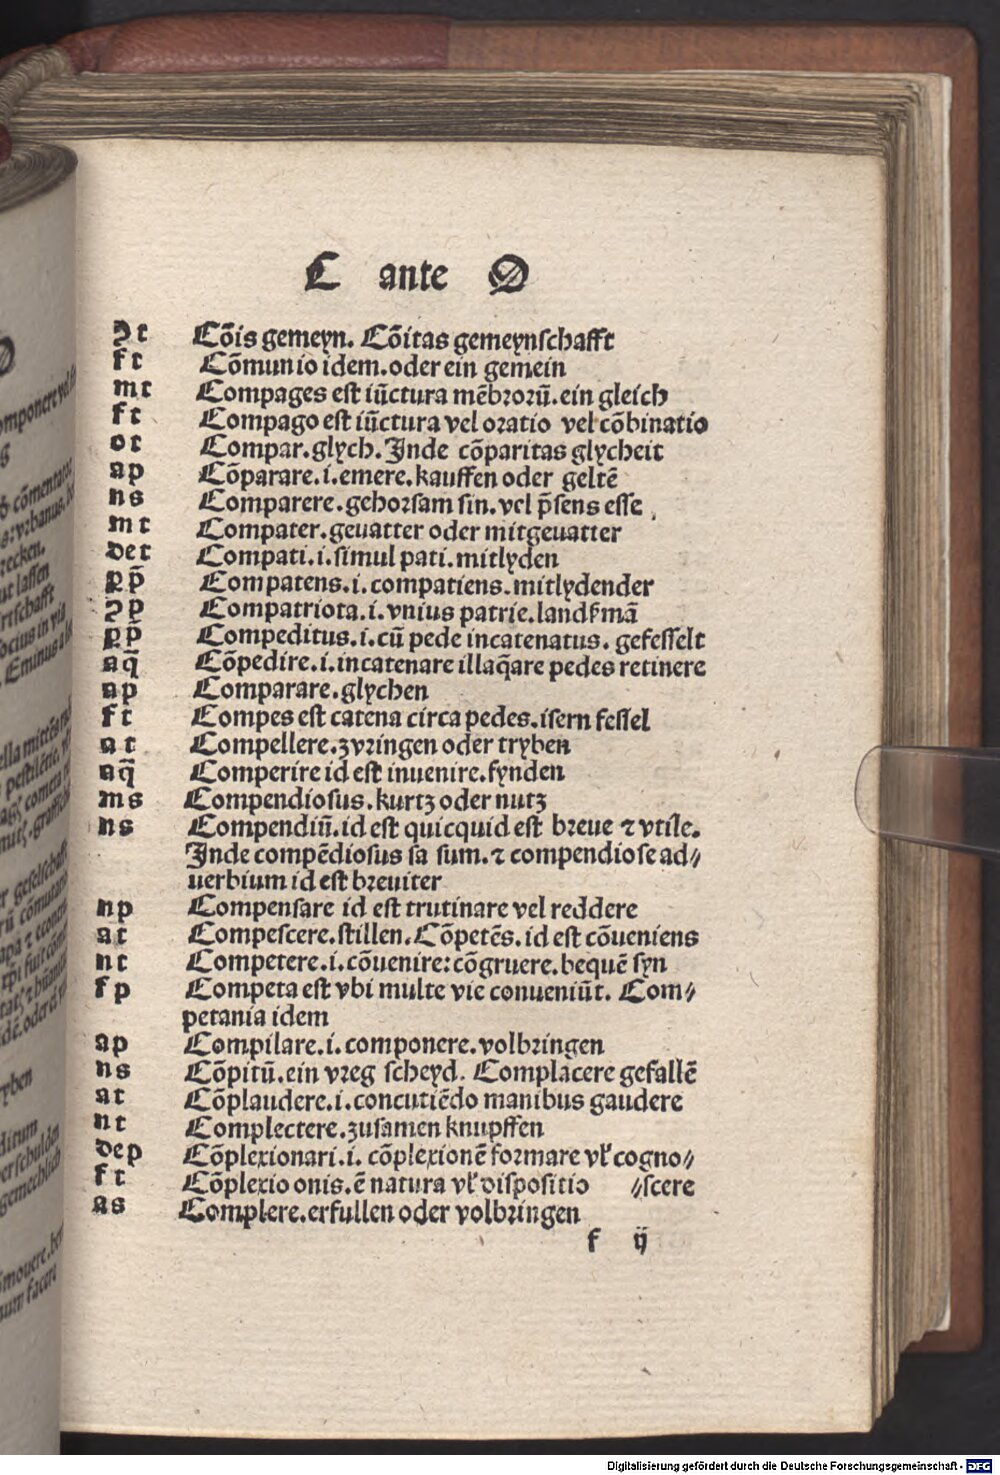 C ante O
ꝯt Cōis gemeyn. Cōitas gemeynschafft
ft Cōmunio idem.oder ein gemein
mt Compages est iūctura mēbrorū.ein gleich
ft Compago est iūctura vel oratio vel cōbinatio
ot Compar.glych.Inde cōparitas glycheit
ap Cōparare.i.emere.kauffen oder geltē
ns Comparere.gehorsam sin.vel p̄sens esse.
mt Compater.geuatter oder mitgeuatter
det Compati.i.simul pati.mitlyden
pp̄ Compatens.i.compatiens.mitlydender
ꝯp Compatriota.i.vnius patrie.landßmā
pp̄ Compeditus.i.cū pede incatenatus.gefesselt
aq̄ Cōpedire.i.incatenare illaq̄are pedes retinere
ap Comparare.glychen
ft Compes est catena circa pedes.isern fessel
at Compellere.zvringen oder tryben
aq̄ Comperire id est inuenire.fynden
ms Compendiosus.kurtz oder nutz
ns Compendiū.id est quicquid est breue ⁊ vtile.
Inde compēdiosus sa sum.⁊ compendiose ad⸗
uerbium id est breuiter
np Compensare id est trutinare vel reddere
at Compescere.stillen.Cōpetēs.id est cōueniens
nt Competere.i.cōuenire:cōgruere.bequē syn
fp Competa est vbi multe vie conueniūt. Com⸗
petania idem
ap Compilare.i.componere.volbringen
ns Cōpitū.ein vreg scheyd. Complacere gefallē
at Cōplaudere.i.concutiēdo manibus gaudere
nt Complectere.zusamen knupffen
dep Cōplexionari.i. cōplexionē formare vł cogno⸗
ft Cōplexio onis.ē natura vł dispositio ⸗scere
as Complere.erfullen oder volbringen
f ij
Digitalisierung gefördert durch die Deutsche Forschungsgemeinschaft - DFG